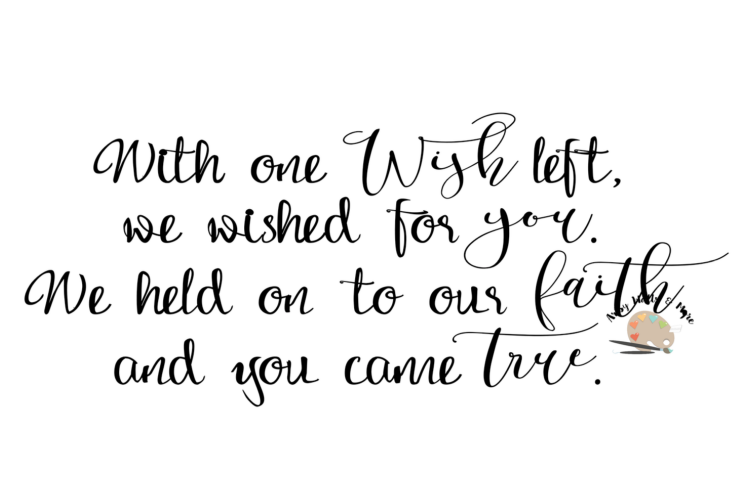 With one Wish left,
we wished for you.
We held on to our faith
and you came true.